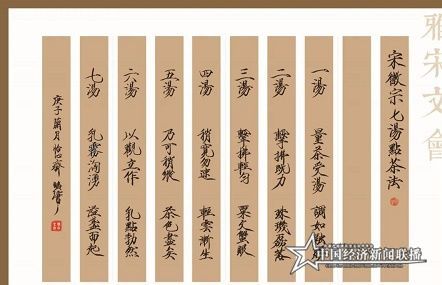 雅宋文會
宋徽宗七湯點茶法
一湯 量茶受湯 調如融膠
二湯 擊拂既力 珠璣磊落
三湯 擊拂輕勻 粟文蟹眼
四湯 稍寬勿速 輕雲漸生
五湯 乃可稍縱 茶色盡矣
六湯 以觀立作 乳點勃然
七湯 乳霧洶湧 溢盞而起
庚子菊月 怡齋
中国经济新闻联播